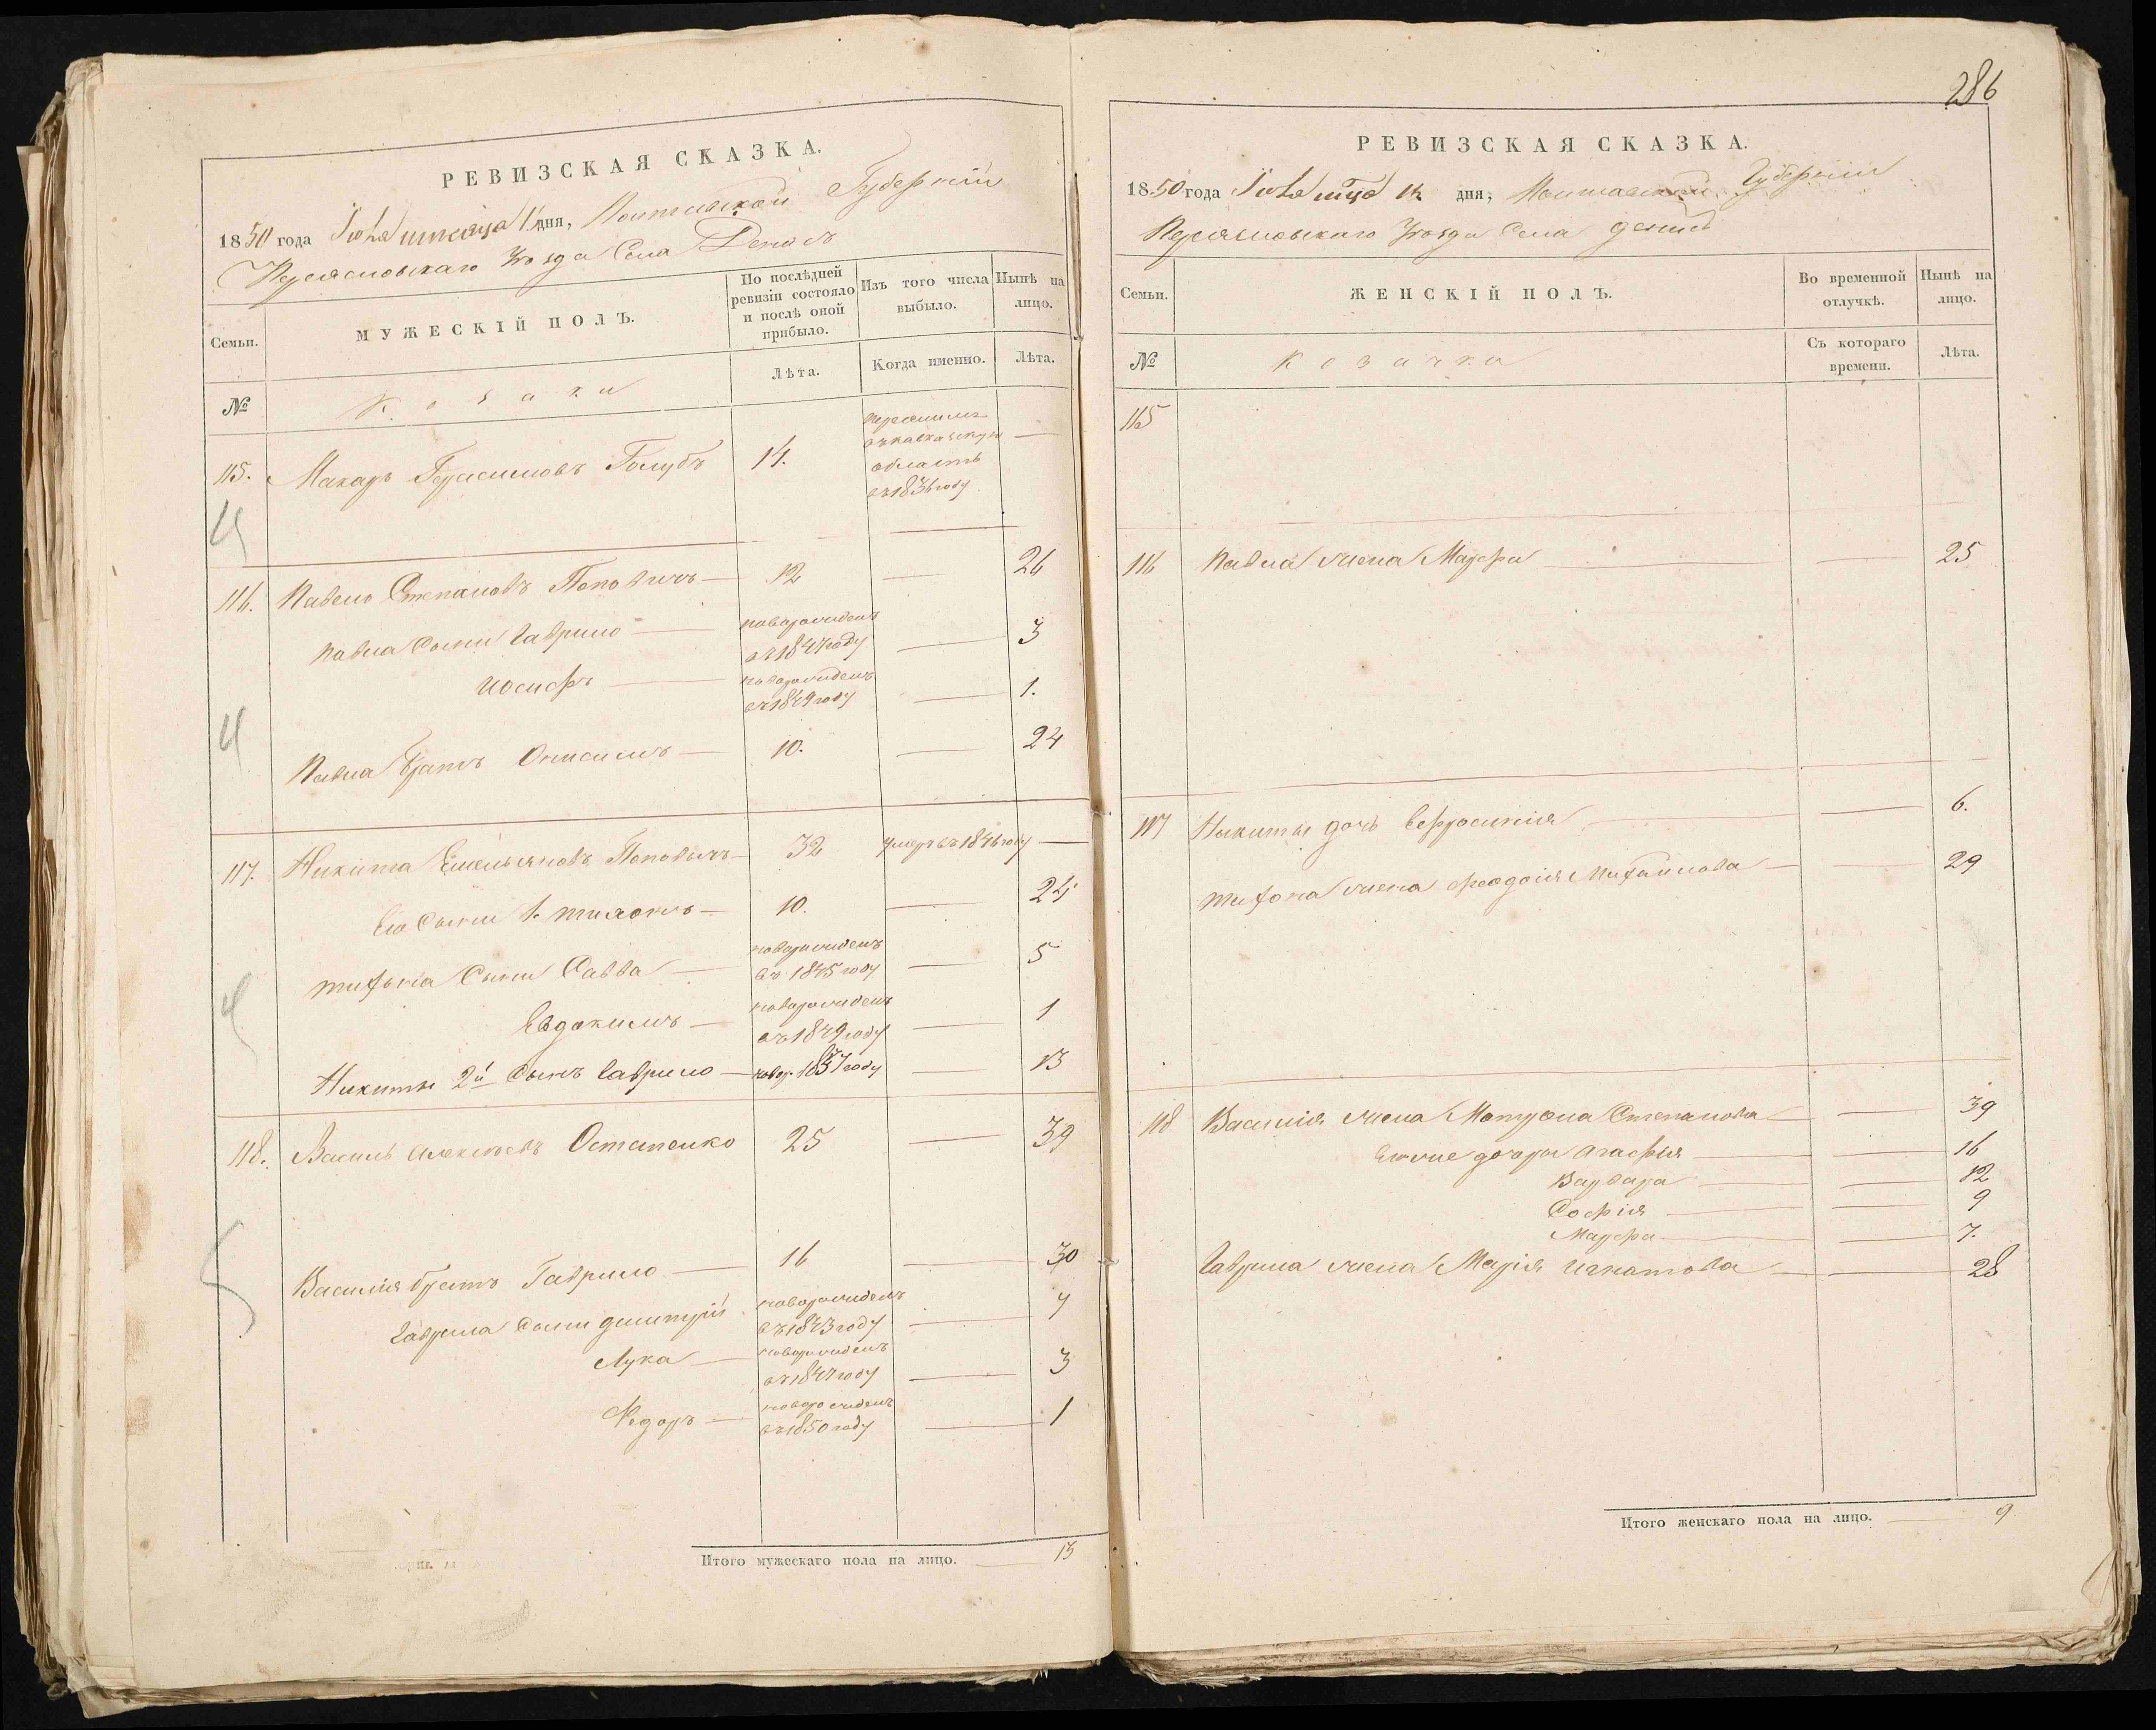 РЕВИЗСКАЯ СКАЗКА.
1850 года Июля месяца 1 дня, Полтавской Губерніи
Переяславскаго Уезда Села Денисъ
Семьи.
МУЖЕСКІЙ ПОЛЪ.
По послѣдней ревизіи состояло и послѣ оной прибыло.
Изъ того числа выбыло.
Нынѣ на лицо.
№
Козаки
Лѣта.
Когда именно.
Лѣта.
115. Макаръ Герасимовъ Голубъ 14. переселилъ въ кавказскую область въ 1836 году —
116. Павело Степановъ Поповичъ — 12 — 26
Павла Сыни Гаврило — новорожденъ въ 1847 году — 3
Иосифъ — новорожденъ въ 1849 году — 1.
Павла Братъ Онисимъ — 10. — 24
117. Никита Емельяновъ Поповичъ — 32 умеръ въ 1846 году —
Его Сыни 1. Тихонъ — 10. — 24
Тихона Сыни Савва — новорожденъ въ 1845 году — 5
Евдокимъ — новорожденъ въ 1849 году — 1
Никиты 2й Сынъ Гаврило — новор. 1837 году — 13
118. Василь Алексеевъ Остапенко 25 — 39
Василія братъ Гаврило — 16 — 30
Гаврила Сыни Дмитрій новорожденъ въ 1843 году — 7
Лука — новорожденъ въ 1847 году — 3
Федоръ — новорожденъ въ 1850 году — 1
Итого мужескаго пола на лицо. — 13
286
РЕВИЗСКАЯ СКАЗКА.
1850 года Июля мца 1 дня, Полтавской Губерніи
Переяславскаго Уезда Села Денисъ
Семьи.
ЖЕНСКІЙ ПОЛЪ.
Во временной отлучкѣ.
Нынѣ на лицо.
№
Козачки
Съ котораго времени.
Лѣта.
115
116 Павла жена Марфа — — 25
117 Никиты дочь Евфросинія — — 6.
Тихона жена Феодосія Михайлова — — 29
118 Василія жена Матрона Степанова — — 39
Егоже дочери Агафья — — 16
Варвара — — 12
Софія — — 9
Марфа — — 7.
Гаврила жена Марія Игнатова — — 28
Итого женскаго пола на лицо. — 9